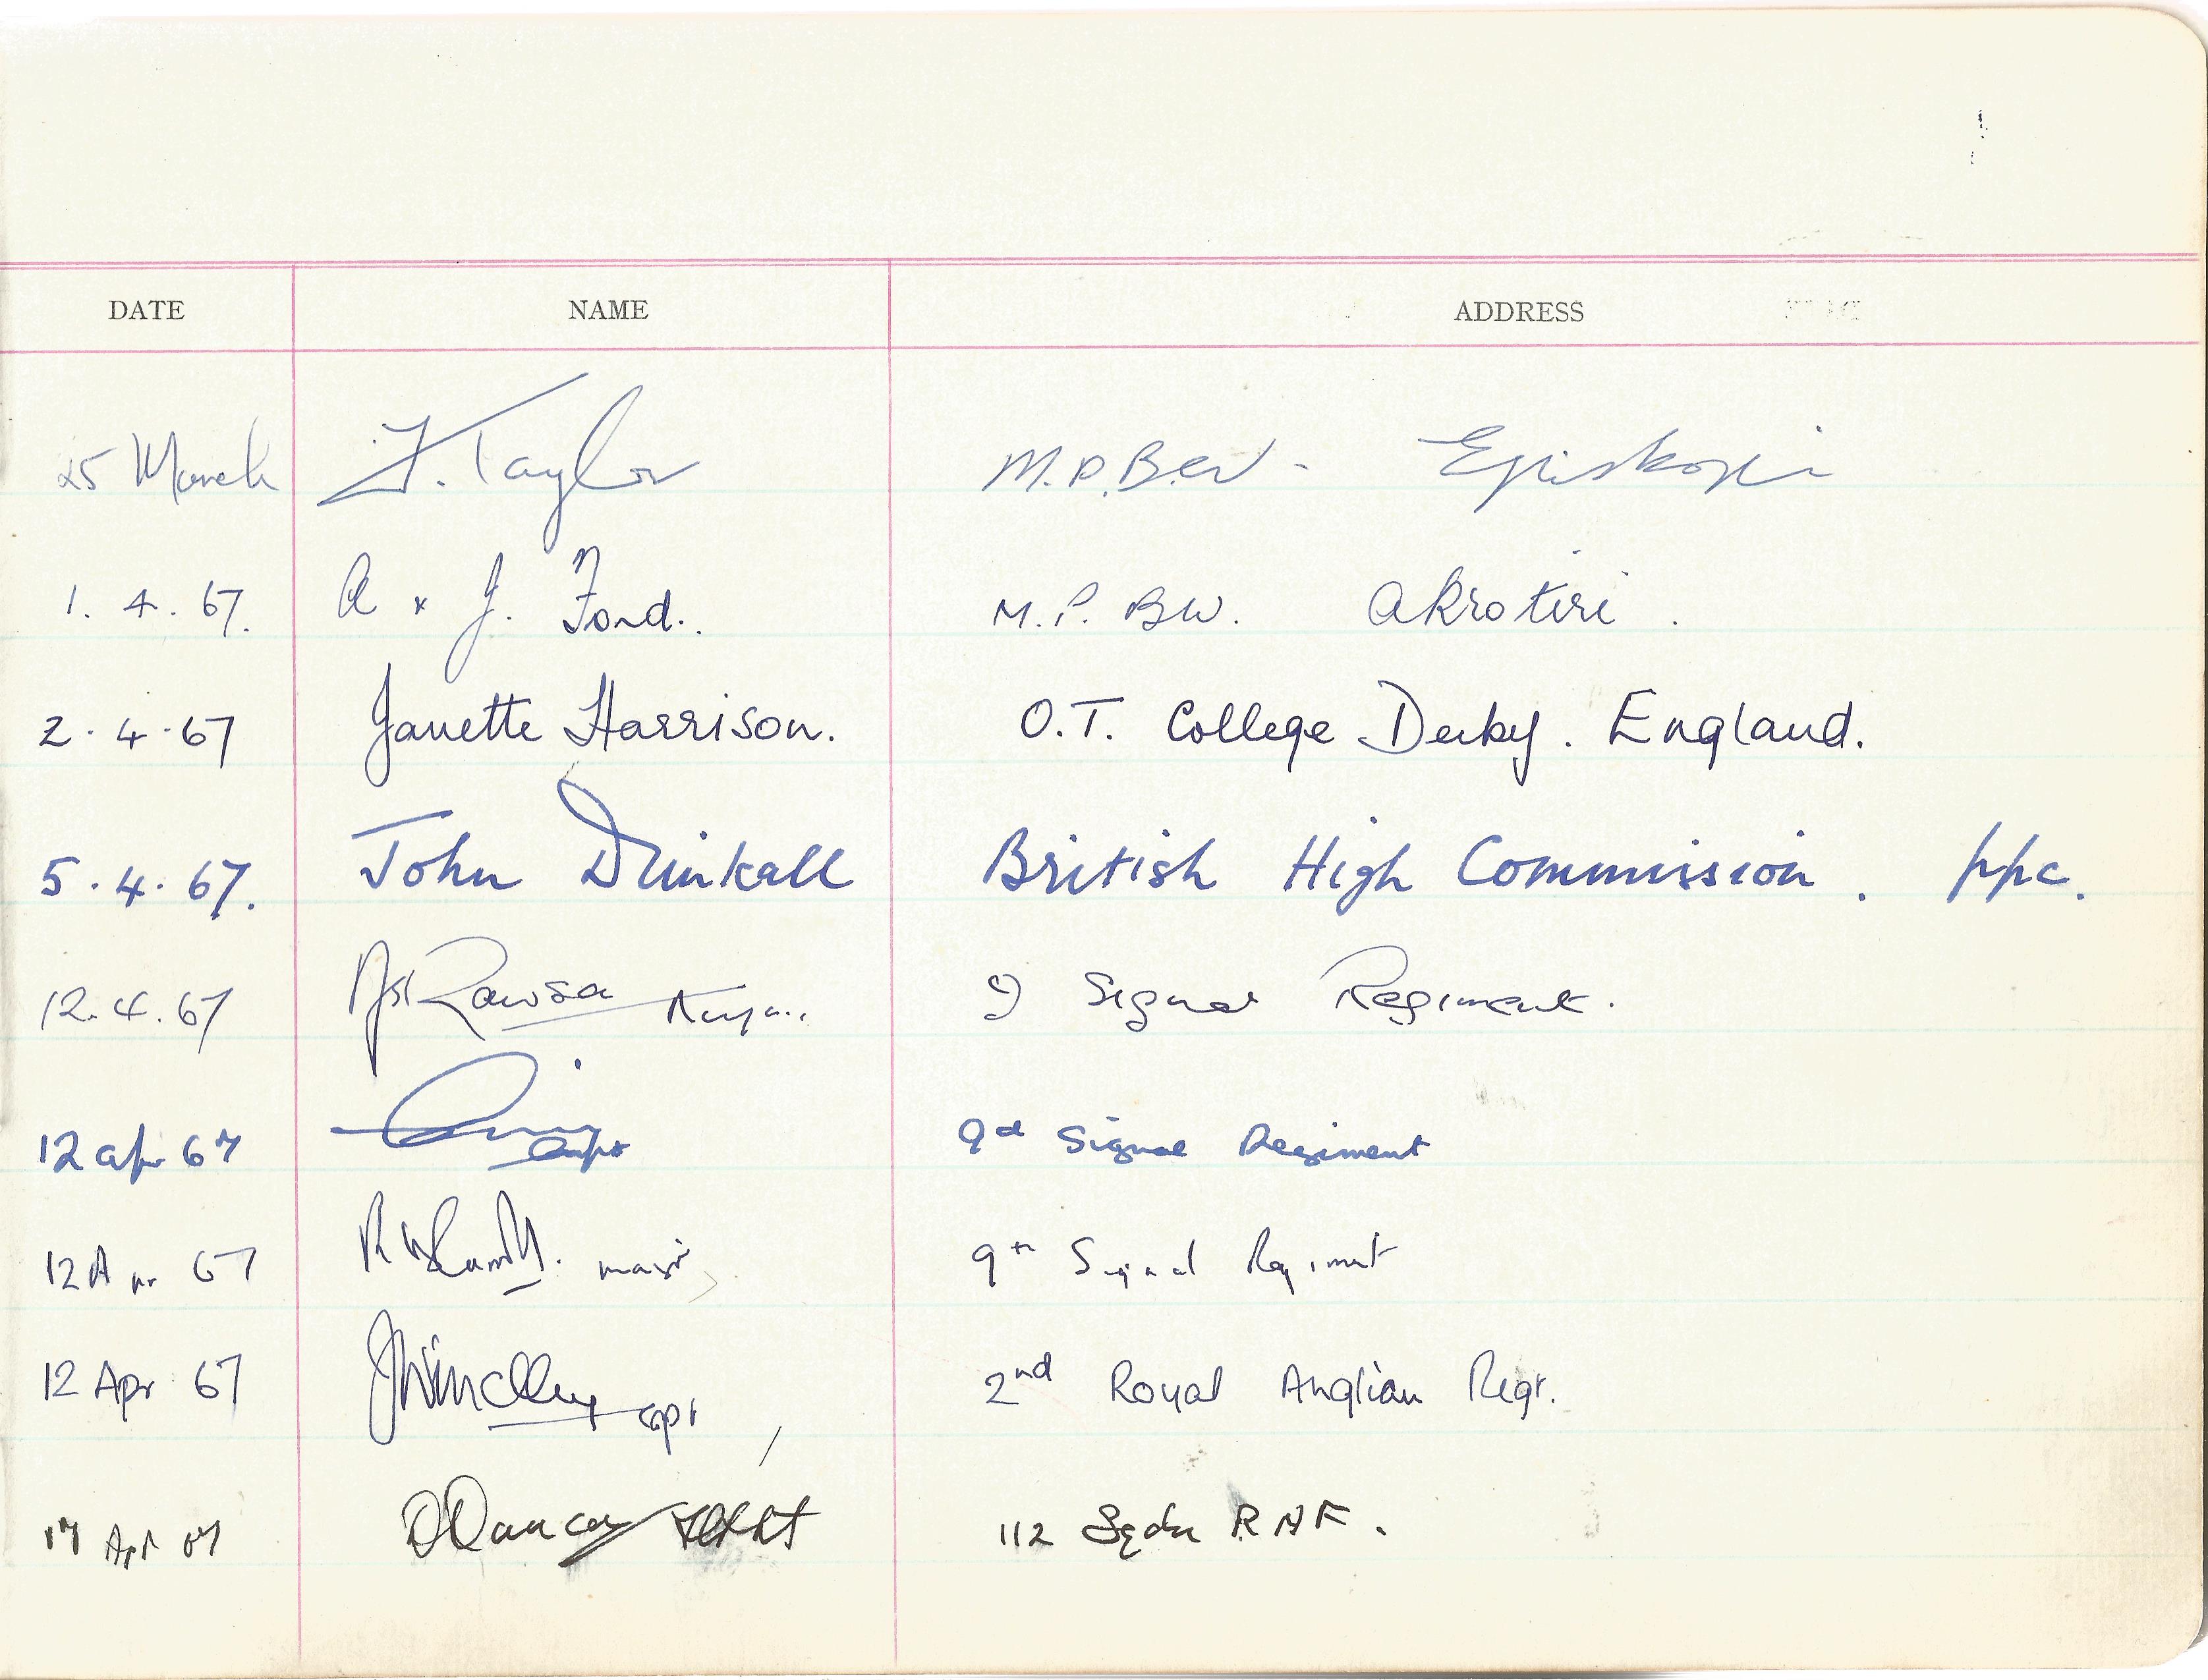 DATE NAME ADDRESS
25 March F. Taylor M.P.B.W - Episkopi
1. 4. 67. A & J. Ford. M.P. BW. Akrotiri.
2.4.67 Janette Harrison. O.T. College Derby. England.
5.4.67. John Drinkall British High Commission. ppc.
12.4.67 9 Signal Regiment.
12 Apr 67 Capt 9th Signal Regiment
12 Apr 67 Major 9th Signal Regiment
12 Apr 67 Capt 2nd Royal Anglian Regt.
17 Apr 67 112 Sqdn RAF.